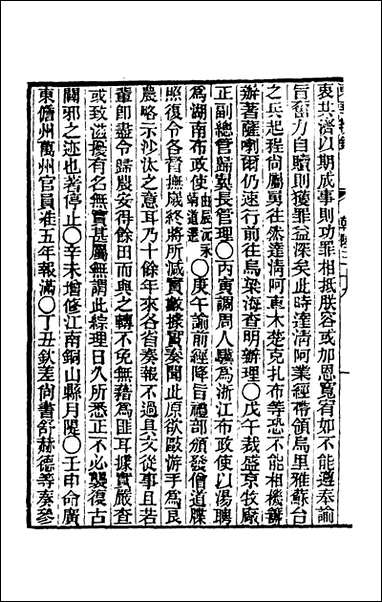 衷共濟以期成事則功罪相抵朕容或加恩寬宥如不能遵奉諭
旨奮力自贖則獲罪益深矣此時達淸阿業經帶領烏里雅蘇台
之兵起程尚屬奮往然達淸阿車木楚克扎布等恐不能相機籌
辦著薩喇爾仍速行前往烏梁海查明辦理○戊午裁盛京牧廠
正副總管歸翼長管理○丙寅調周人驥爲浙江布政使以湯聘
爲湖南布政使由辰沅永靖道遷○庚午諭前經降旨禮部頒發僧道牒
照復令各督撫歲終將所減實數據實奏聞此原欲歐游手爲良
農略示沙汰之意耳乃十餘年來各省奏報不過具文從事且若
輩卽盡令歸農安得餘田而與之轉不免無藉爲匪耳據實嚴查
或致滋擾有名無實甚屬無謂此綜理日久所悉正不必襲復古
闢邪之迹也著停止○辛未增修江南銅山縣月隄○壬申命廣
東儋州萬州官員准五年報滿○丁丑欽差尚書舒赫德等奏參